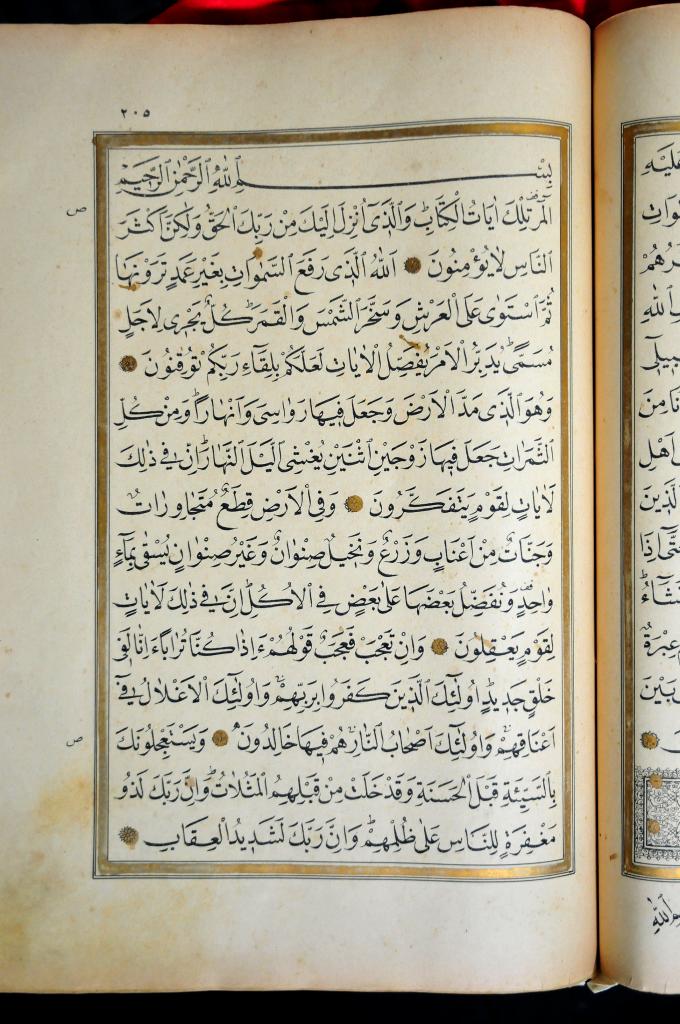 ٢٠٥
بِسْمِ اللّٰهِ الرَّحْمٰنِ الرَّحِيمِ
الٓمٓرٰ تِلْكَ اٰيَاتُ الْكِتَابِ وَالَّذٖى اُنْزِلَ اِلَيْكَ مِنْ رَبِّكَ الْحَقُّ وَلٰكِنَّ اَكْثَرَ
ص
النَّاسِ لَا يُؤْمِنُونَ اَللّٰهُ الَّذٖى رَفَعَ السَّمٰوَاتِ بِغَيْرِ عَمَدٍ تَرَوْنَهَا
ثُمَّ اسْتَوٰى عَلَى الْعَرْشِ وَسَخَّرَ الشَّمْسَ وَالْقَمَرَ كُلٌّ يَجْرٖى لِاَجَلٍ
مُسَمًّى يُدَبِّرُ الْاَمْرَ يُفَصِّلُ الْاٰيَاتِ لَعَلَّكُمْ بِلِقَاءِ رَبِّكُمْ تُوقِنُونَ
وَهُوَ الَّذٖى مَدَّ الْاَرْضَ وَجَعَلَ فٖيهَا رَوَاسِىَ وَاَنْهَارًا وَمِنْ كُلِّ
الثَّمَرَاتِ جَعَلَ فٖيهَا زَوْجَيْنِ اثْنَيْنِ يُغْشِى الَّيْلَ النَّهَارَ اِنَّ فٖى ذٰلِكَ
لَاٰيَاتٍ لِقَوْمٍ يَتَفَكَّرُونَ وَفِى الْاَرْضِ قِطَعٌ مُتَجَاوِرَاتٌ
وَجَنَّاتٌ مِنْ اَعْنَابٍ وَزَرْعٌ وَنَخٖيلٌ صِنْوَانٌ وَغَيْرُ صِنْوَانٍ يُسْقٰى بِمَاءٍ
وَاحِدٍ وَنُفَضِّلُ بَعْضَهَا عَلٰى بَعْضٍ فِى الْاُكُلِ اِنَّ فٖى ذٰلِكَ لَاٰيَاتٍ
لِقَوْمٍ يَعْقِلُونَ وَاِنْ تَعْجَبْ فَعَجَبٌ قَوْلُهُمْ ءَاِذَا كُنَّا تُرَابًا ءَاِنَّا لَفٖى
خَلْقٍ جَدٖيدٍ اُولٰئِكَ الَّذٖينَ كَفَرُوا بِرَبِّهِمْ وَاُولٰئِكَ الْاَغْلَالُ فٖى
اَعْنَاقِهِمْ وَاُولٰئِكَ اَصْحَابُ النَّارِ هُمْ فٖيهَا خَالِدُونَ وَيَسْتَعْجِلُونَكَ
ص
بِالسَّيِّئَةِ قَبْلَ الْحَسَنَةِ وَقَدْ خَلَتْ مِنْ قَبْلِهِمُ الْمَثُلَاتُ وَاِنَّ رَبَّكَ لَذُو
مَغْفِرَةٍ لِلنَّاسِ عَلٰى ظُلْمِهِمْ وَاِنَّ رَبَّكَ لَشَدٖيدُ الْعِقَابِ